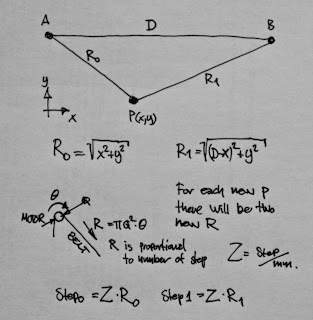 A D B
R₀ R₁
y
x
P(x,y)
R₀ = √x²+y² R₁ = √(D-x)²+y²
θ
Q
MOTOR
BELT
R = πQ²·θ
R is proportional
to number of step
For each new P
there will be two
new R
Z = step/mm.
Step₀ = Z·R₀ Step1 = Z·R₁